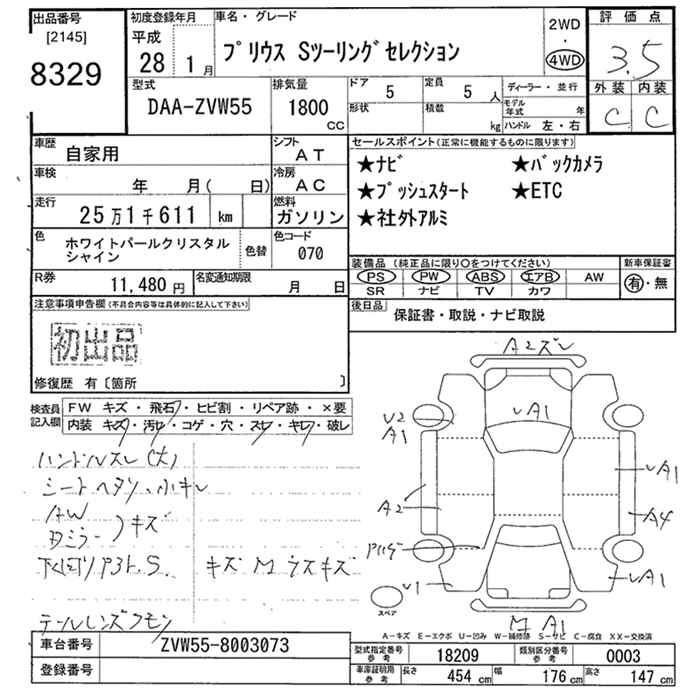 出品番号
[2145]
8329
初度登録年月
平成
28 1月
車名・グレード
プリウス Sツーリングセレクション
2WD
・
4WD
評価点
3.5
外装 内装
C C
型式
DAA-ZVW55
排気量
1800
CC
ドア 5
形状
定員 5 人
積数 kg
ディーラー・並行
モデル年式 年
ハンドル 左・右
車歴
自家用
シフト
AT
車検
年 月( 日)
冷房
AC
走行
25万1千611 km
燃料
ガソリン
色
ホワイトパールクリスタル
シャイン
色替
色コード
070
R券
11,480 円
名変通知期限
月 日
セールスポイント(正常に機能するものに限ります)
★ナビ ★バックカメラ
★プッシュスタート ★ETC
★社外アルミ
装備品(純正品に限り○をつけてください)
PS PW ABS エアB AW
SR ナビ TV カワ
新車保証書
有・無
後日品
保証書・取説・ナビ取説
注意事項申告欄(不具合内容等は具体的に記入して下さい)
初出品
修復歴 有〔箇所 〕
検査員
記入欄
FW キズ・飛石・ヒビ割・リペア跡・×要
内装 キズ・汚レ・コゲ・穴・スレ・キレ・破レ
ハンドルスレ(大)
シートヘタリ、小キレ
AW
Dミラー 〉キズ
キズ M ラスキズ
テールレンズ
A2ズレ
U2
A1
UA1
UA1
A2
A4
U1
UA1
M A1
スペア
A-キズ E-エクボ U-凹み W-補修跡 S-サビ C-腐食 XX-交換済
車台番号
ZVW55-8003073
登録番号
型式指定番号
参考
18209
類別区分番号
参考
0003
車庫証明用
参考
長さ 454 cm 幅 176 cm 高さ 147 cm